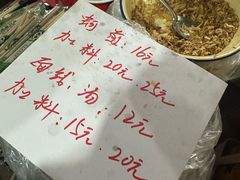 糊煎：16元
加料：20元 25元
面线汤：12元
加料：15元、20元